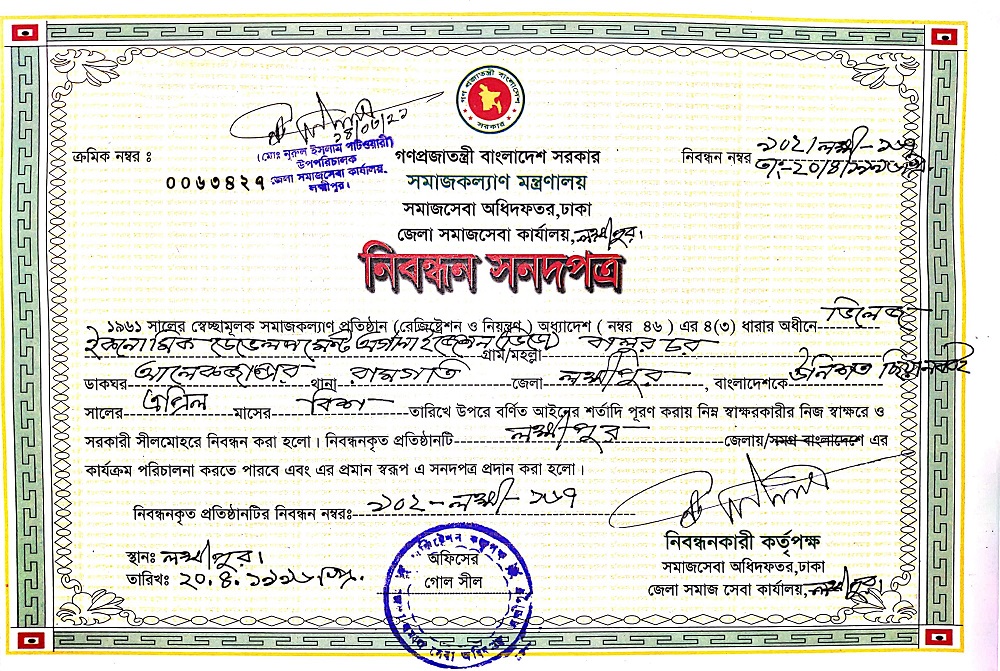 গণপ্রজাতন্ত্রী বাংলাদেশ সরকার
১৪/০৬/২১
(মোঃ নুরুল ইসলাম পাটওয়ারী)
উপপরিচালক
জেলা সমাজসেবা কার্যালয়,
লক্ষ্মীপুর।
ক্রমিক নম্বর ঃ
০০৬৩৪২৭
গণপ্রজাতন্ত্রী বাংলাদেশ সরকার
নিবন্ধন নম্বর ১০২/লক্ষ্মী-১৬৭
তাং-২০/৪/১৯৯৬
সমাজকল্যাণ মন্ত্রণালয়
সমাজসেবা অধিদফতর,ঢাকা
জেলা সমাজসেবা কার্যালয়, লক্ষ্মীপুর।
নিবন্ধন সনদপত্র
১৯৬১ সালের স্বেচ্ছামূলক সমাজকল্যাণ প্রতিষ্ঠান (রেজিষ্ট্রেশন ও নিয়ন্ত্রণ ) অধ্যাদেশ ( নম্বর ৪৬ ) এর ৪(৩) ধারার অধীনে ভিলেজ
ইকনোমিক ডেভেলপমেন্ট অর্গানাইজেশন গ্রাম/মহল্লা বালুরচর
ডাকঘর আলেকজান্ডার থানা রামগতি জেলা লক্ষ্মীপুর , বাংলাদেশকে উনিশত ছিয়ানব্বই
সালের এপ্রিল মাসের বিশ তারিখে উপরে বর্ণিত আইনের শর্তাদি পূরণ করায় নিম্ন স্বাক্ষরকারীর নিজ স্বাক্ষরে ও
সরকারী সীলমোহরে নিবন্ধন করা হলো। নিবন্ধনকৃত প্রতিষ্ঠানটি লক্ষ্মীপুর জেলায়/সমগ্র বাংলাদেশে এর
কার্যক্রম পরিচালনা করতে পারবে এবং এর প্রমান স্বরূপ এ সনদপত্র প্রদান করা হলো।
নিবন্ধনকৃত প্রতিষ্ঠানটির নিবন্ধন নম্বরঃ ১০২-লক্ষ্মী-১৬৭
স্থানঃ লক্ষ্মীপুর।
তারিখঃ ২০.৪.১৯৯৬
অফিসের
গোল সীল
নিবন্ধনকারী কর্তৃপক্ষ
সমাজসেবা অধিদফতর,ঢাকা
জেলা সমাজ সেবা কার্যালয়, লক্ষ্মীপুর।